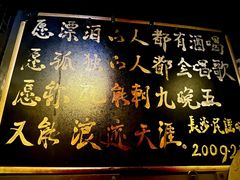 愿漂泊的人都有酒喝
愿孤独的人都会唱歌
愿你能刺九晚五
又能浪迹天涯
长沙民谣
2009.2